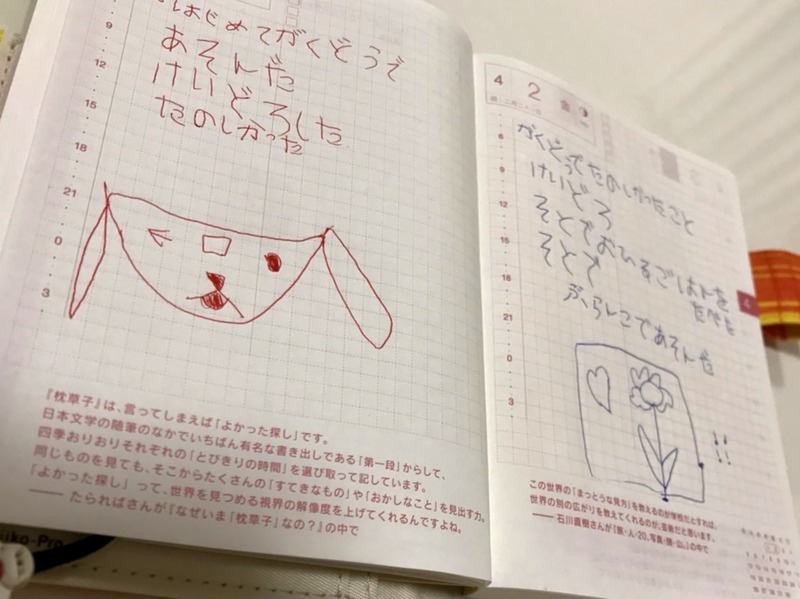 はじめてがくどうで
あそんだ
けいどろした
たのしかった
9
12
15
18
21
0
3
『枕草子』は、言ってしまえば「よかった探し」です。
日本文学の随筆のなかでいちばん有名な書き出しである「第一段」からして、
四季おりおりそれぞれの「とびきりの時間」を選び取って記しています。
同じものを見ても、そこからたくさんの「すてきなもの」や「おかしなこと」を見出す力。
「よかった探し」って、世界を見つめる視界の解像度を上げてくれるんですよね。
―― たらればさんが『なぜいま「枕草子」なの?』の中で
4 2 金
がくどうでたのしかったこと
けいどろ
そとでおひるごはんを
たべた
そとで
ぶらんこであそんだ
6
9
12
15
18
21
0
3
!!
4
この世界の「まっとうな見方」を教えるのが学校だとすれば、
世界の別の広がりを教えてくれるのが、芸術だと思います。
―― 石川直樹さんが『旅・人・20。写真・顔・山。』の中で